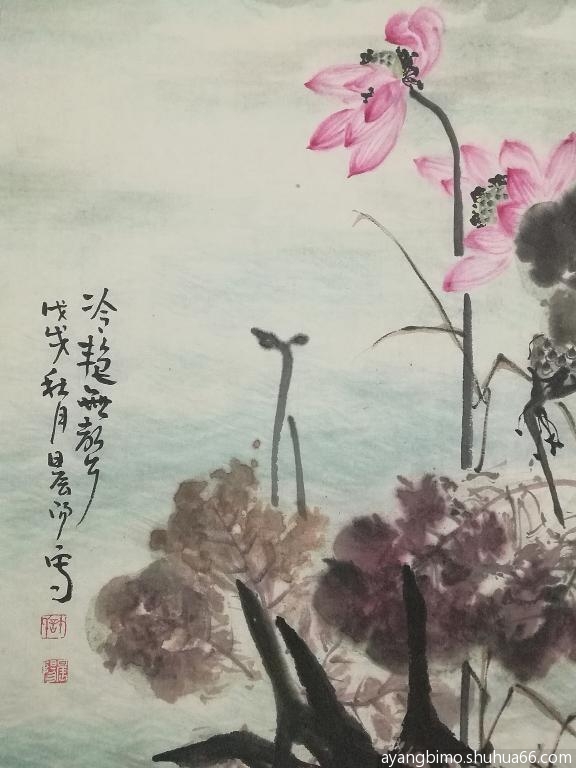 冷艳無聲
戊戌秋月晨阳写
ayangbimo.shuhua66.com